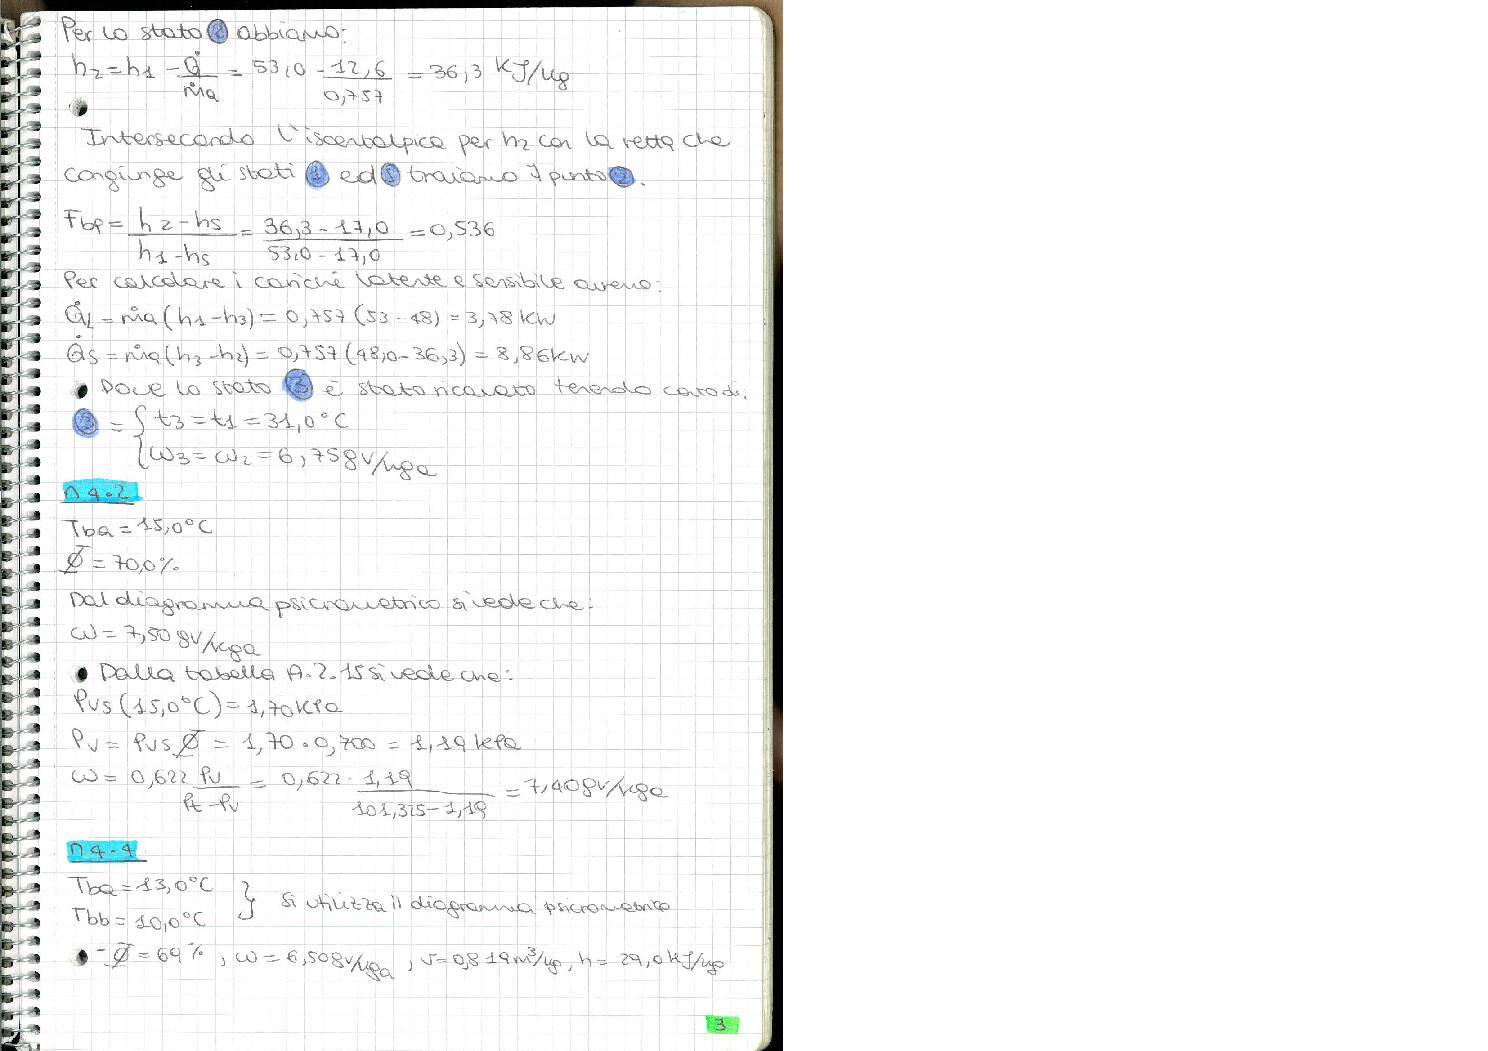 Per lo stato 2 abbiamo:
h2 = h1 - Q̇/ṁa = 53,0 - 12,6/0,757 = 36,3 KJ/kg
Intersecando l'isoentalpica per h2 con la retta che
congiunge gli stati 1 ed S traiamo il punto 2.
Fbp = (h2 - hs)/(h1 - hs) = (36,3 - 17,0)/(53,0 - 17,0) = 0,536
Per calcolare i carichi latente e sensibile avremo:
Q̇L = ṁa (h1 - h3) = 0,757 (53 - 48) = 3,78 kW
Q̇S = ṁa (h3 - h2) = 0,757 (48,0 - 36,3) = 8,86 kW
Dove lo stato 3 è stato ricavato tenendo conto di:
3 = { t3 = t1 = 31,0°C
{ ω3 = ω2 = 6,75 gv/kga
n 4.2
Tba = 15,0°C
Ø = 70,0%
Dal diagramma psicrometrico si vede che:
ω = 7,50 gv/kga
Dalla tabella A.2.15 si vede che:
Pvs (15,0°C) = 1,70 kPa
Pv = Pvs Ø = 1,70 · 0,700 = 1,19 kPa
ω = 0,622 Pv/(Pt - Pv) = 0,622 · 1,19/(101,325 - 1,19) = 7,40 gv/kga
n 4.4
Tba = 13,0°C
Tbb = 10,0°C } si utilizza il diagramma psicrometrico
- Ø = 69%, ω = 6,50 gv/kga, v = 0,819 m³/kg, h = 29,0 kJ/kg
3